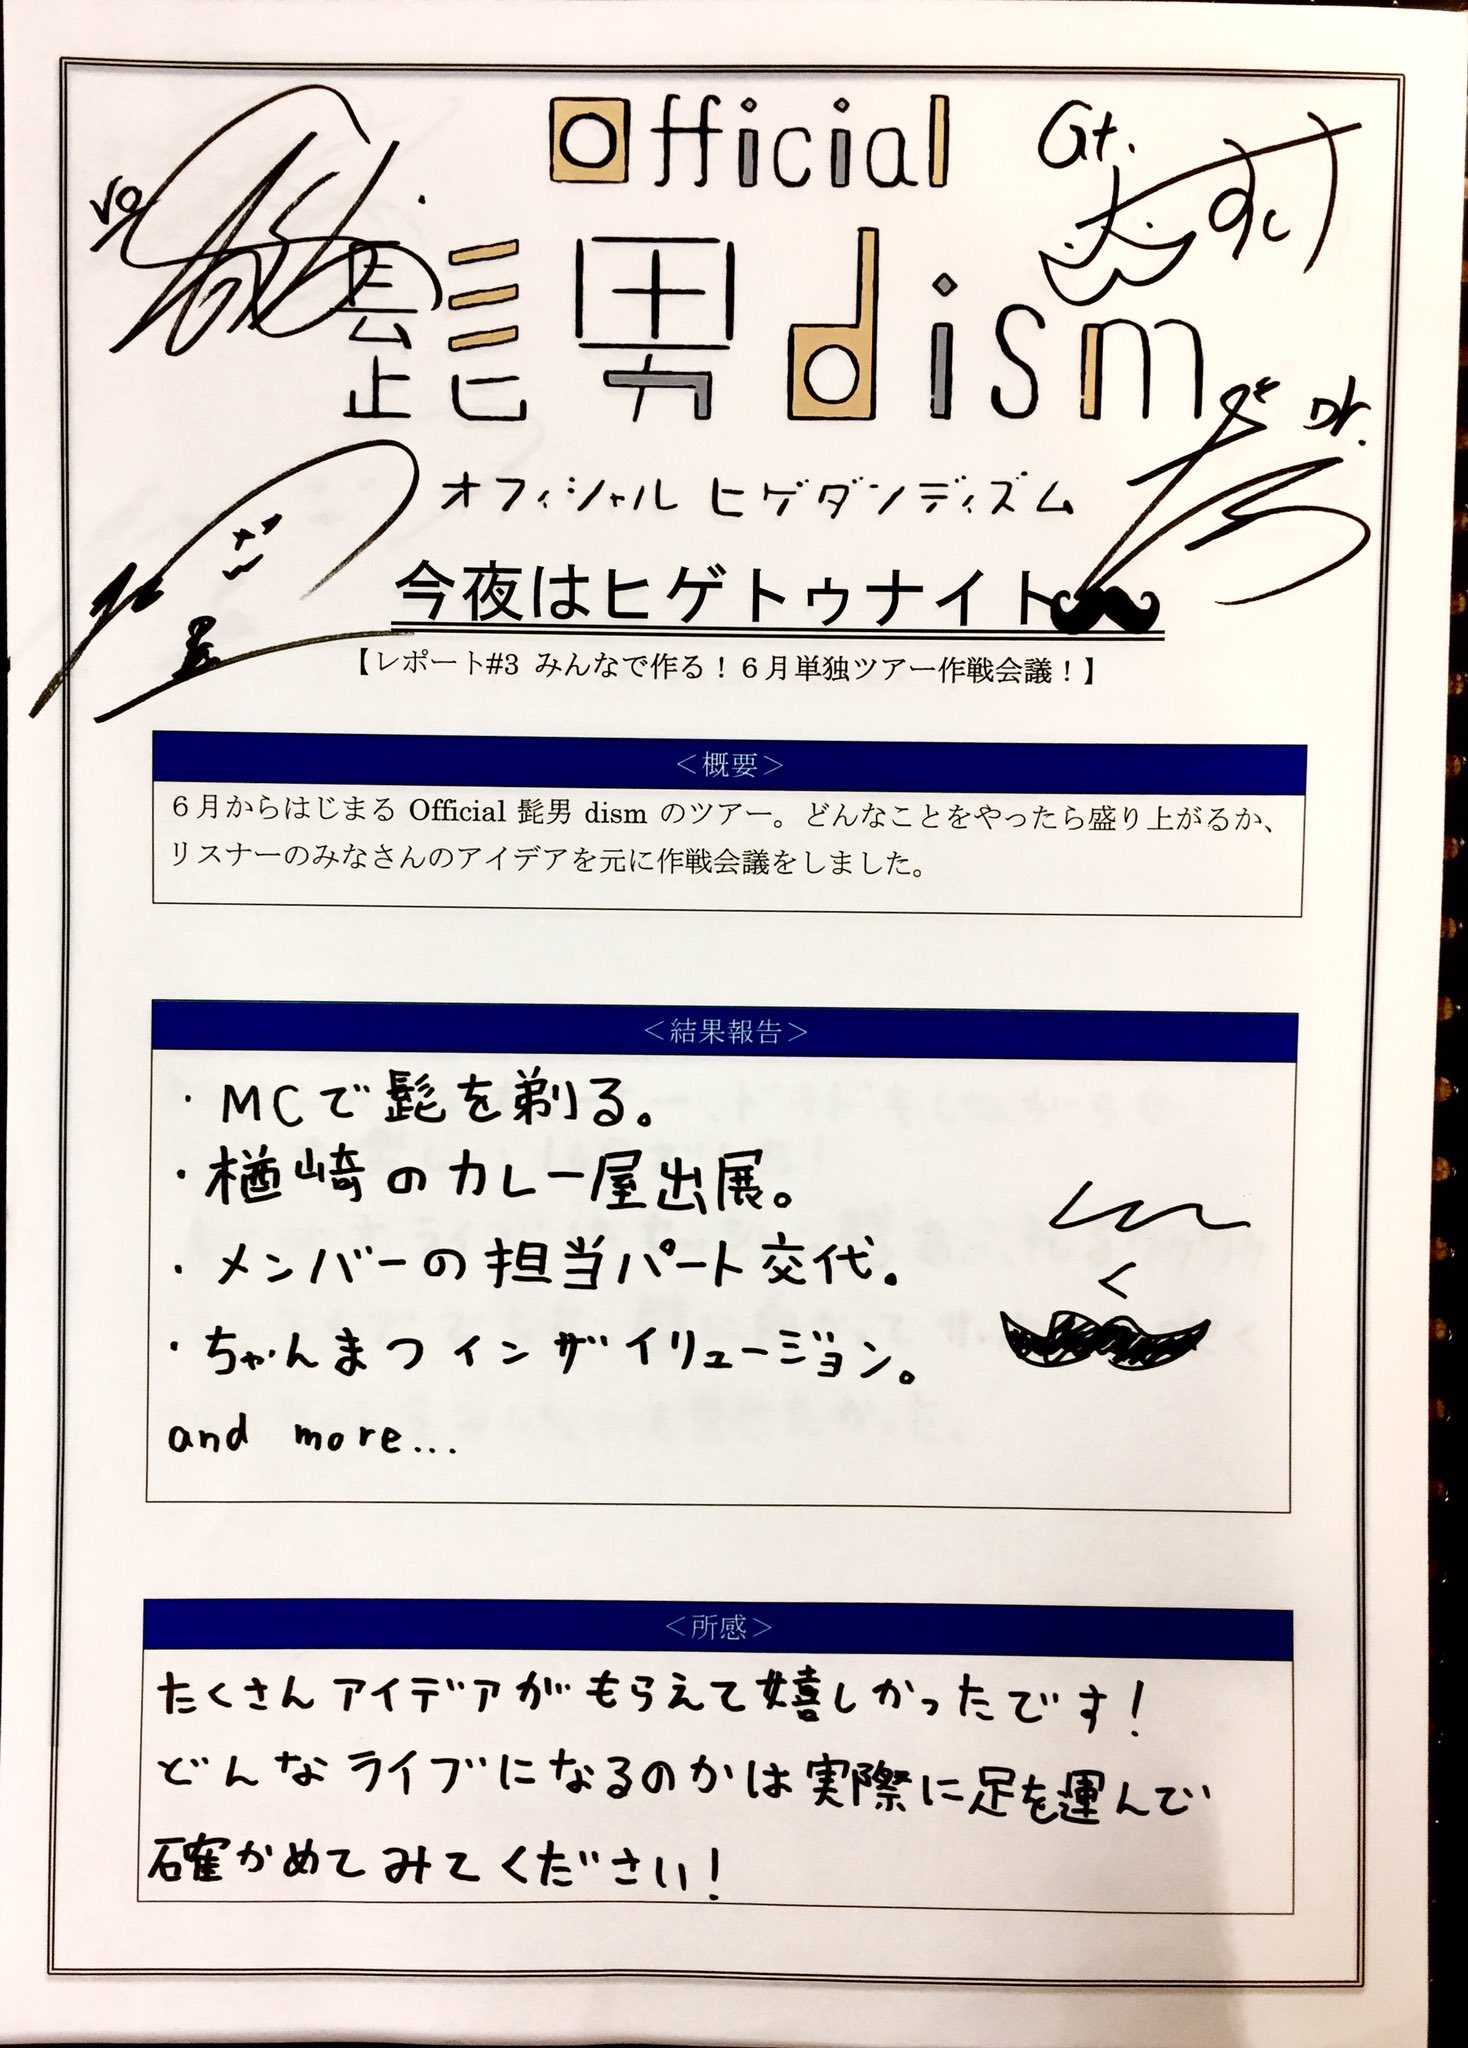 Official
髭男dism
Vo.
Gt.
Dr.
オフィシャルヒゲダンディズム
今夜はヒゲトゥナイト
【レポート#3 みんなで作る！６月単独ツアー作戦会議！】
＜概要＞
６月からはじまる Official 髭男 dism のツアー。どんなことをやったら盛り上がるか、
リスナーのみなさんのアイデアを元に作戦会議をしました。
＜結果報告＞
・MCで髭を剃る。
・楢崎のカレー屋出展。
・メンバーの担当パート交代。
・ちゃんまつインザイリュージョン。
and more...
＜所感＞
たくさんアイデアがもらえて嬉しかったです！
どんなライブになるのかは実際に足を運んで
確かめてみてください！